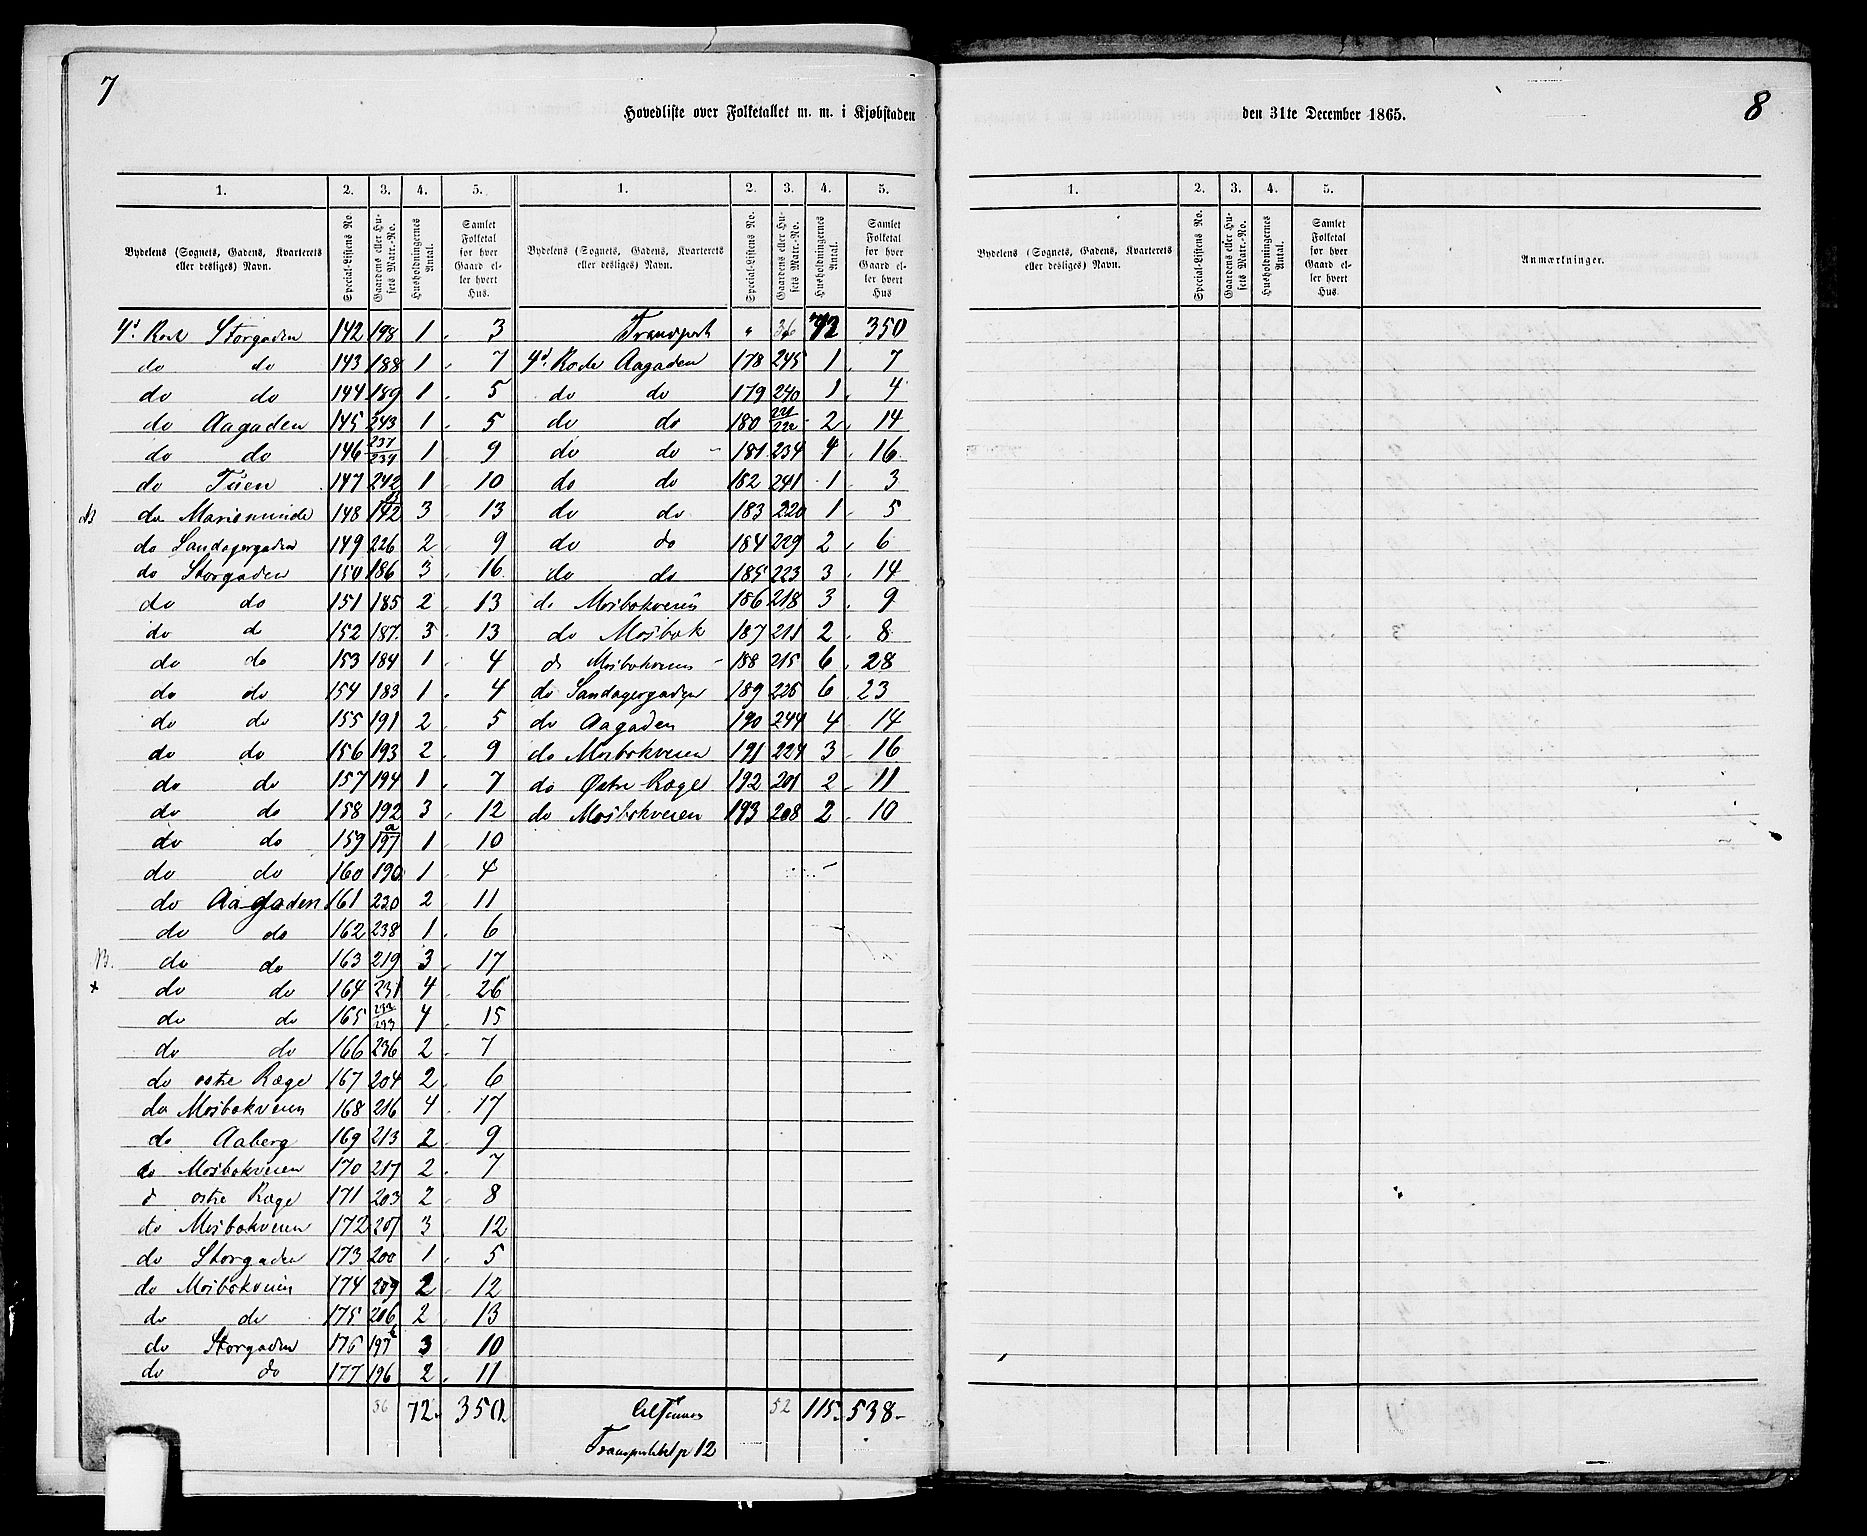 7
Hovedliste over Folketallet m. m. i Kjøbstaden
den 31te December 1865.
8
1. 2. 3. 4. 5. 1. 2. 3. 4. 5.
1. 2. 3. 4. 5.
Bydelens (Sognets, Gadens, Kvarterets eller desliges) Navn. Special-Listens No. Gaardens eller Husets Matr.-No. Husholdningernes Antal. Samlet Folketal for hver Gaard eller hvert Hus.
Bydelens (Sognets, Gadens, Kvarterets eller desliges) Navn. Special-Listens No. Gaardens eller Husets Matr.-No. Husholdningernes Antal. Samlet Folketal for hver Gaard eller hvert Hus
Bydelens (Sognets, Gadens, Kvarterets eller desliges) Navn. Special-Listens No. Gaardens eller Husets Matr.-No. Husholdningernes Antal. Samlet Folketal for hver Gaard eller hvert Hus. Anmærkninger.
4d. Rode Storgaden 142 198 1 3
do do 143 188 1 7
do do 144 189 1 5
do Aagaden 145 243 1 5
do do 146 237/239 1 9
do Tüen 147 242 1 10
do Marieminde 148 142 3 13
do Sandagergaden 149 226 2 9
do Storgaden 150 186 3 16
do do 151 185 2 13
do do 152 187 3 13
do do 153 184 1 4
do do 154 183 1 4
do do 155 191 2 5
do do 156 193 2 9
do do 157 194 1 7
do do 158 192 3 12
do do 159 a/197 1 10
do do 160 190 1 4
do Aagaden 161 230 2 11
do do 162 238 1 6
do do 163 219 3 17
x do do 164 231 4 26
do do 165 232/233 4 15
do do 166 236 2 7
do østre Ræge 167 204 2 6
do Mosbækveien 168 216 4 17
do Aaberg 169 213 2 9
do Mosbækveien 170 217 2 7
d østre Ræge 171 203 2 8
do Mosbækveien 172 207 3 12
do Storgaden 173 200 1 5
do Mosbækveien 174 209 2 12
do do 175 206 2 13
do Storgaden 176 197b 3 10
do do 177 196 2 11
36 72 350
Transport " 36 72 350
4d. Rode Aagaden 178 245 1 7
do do 179 240 1 4
do do 180 221/222 2 14
do do 181 234 4 16
do do 182 241 1 3
do do 183 220 1 5
do do 184 229 2 6
do do 185 223 3 14
do Mosbækveien 186 218 3 9
do Mosbæk 187 211 2 8
do Mosbækveien 188 215 6 28
do Sandagergaden 189 225 6 23
do Aagaden 190 244 4 14
do Mosbækveien 191 224 3 16
do Østre Ræge 192 201 2 11
do Mosbækveien 193 208 2 10
Tilsammen 52 115 538
Transporteret p 12